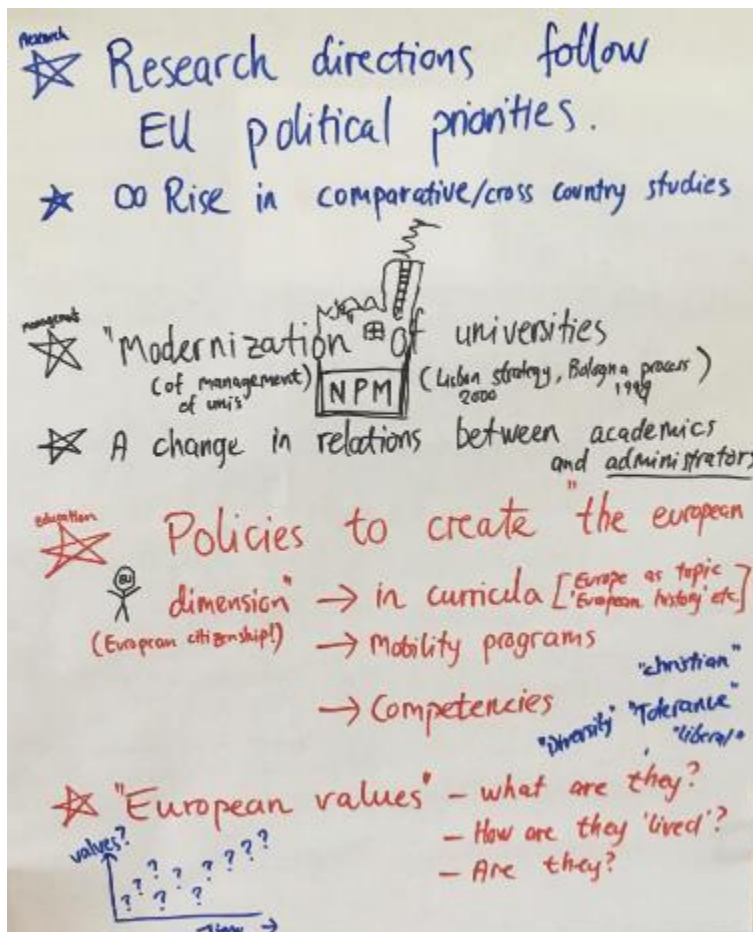 research
Research directions follow
EU political priorities.
∞ Rise in comparative/cross country studies
management
"Modernization of universities
(of management)
of unis
NPM
(Lisbon strategy, Bologna process)
2000 1999
A change in relations between academics
and administrators
education
Policies to create "the european
EU
dimension" → in curricula [Europe as topic
'European history' etc.]
(European citizenship!)
→ Mobility programs
→ Competencies
"christian"
"Diversity" "Tolerance"
"liberal"
"European values" - what are they?
- How are they 'lived'?
- Are they?
values?
? ? ? ? ? ? ? ? ? ?